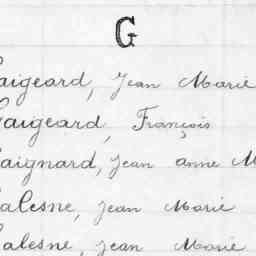 G
aigeard, Jean Marie
Gaigeard, François
aignard, Jean anne M
alesne, Jean Marie
alesne, Jean Marie